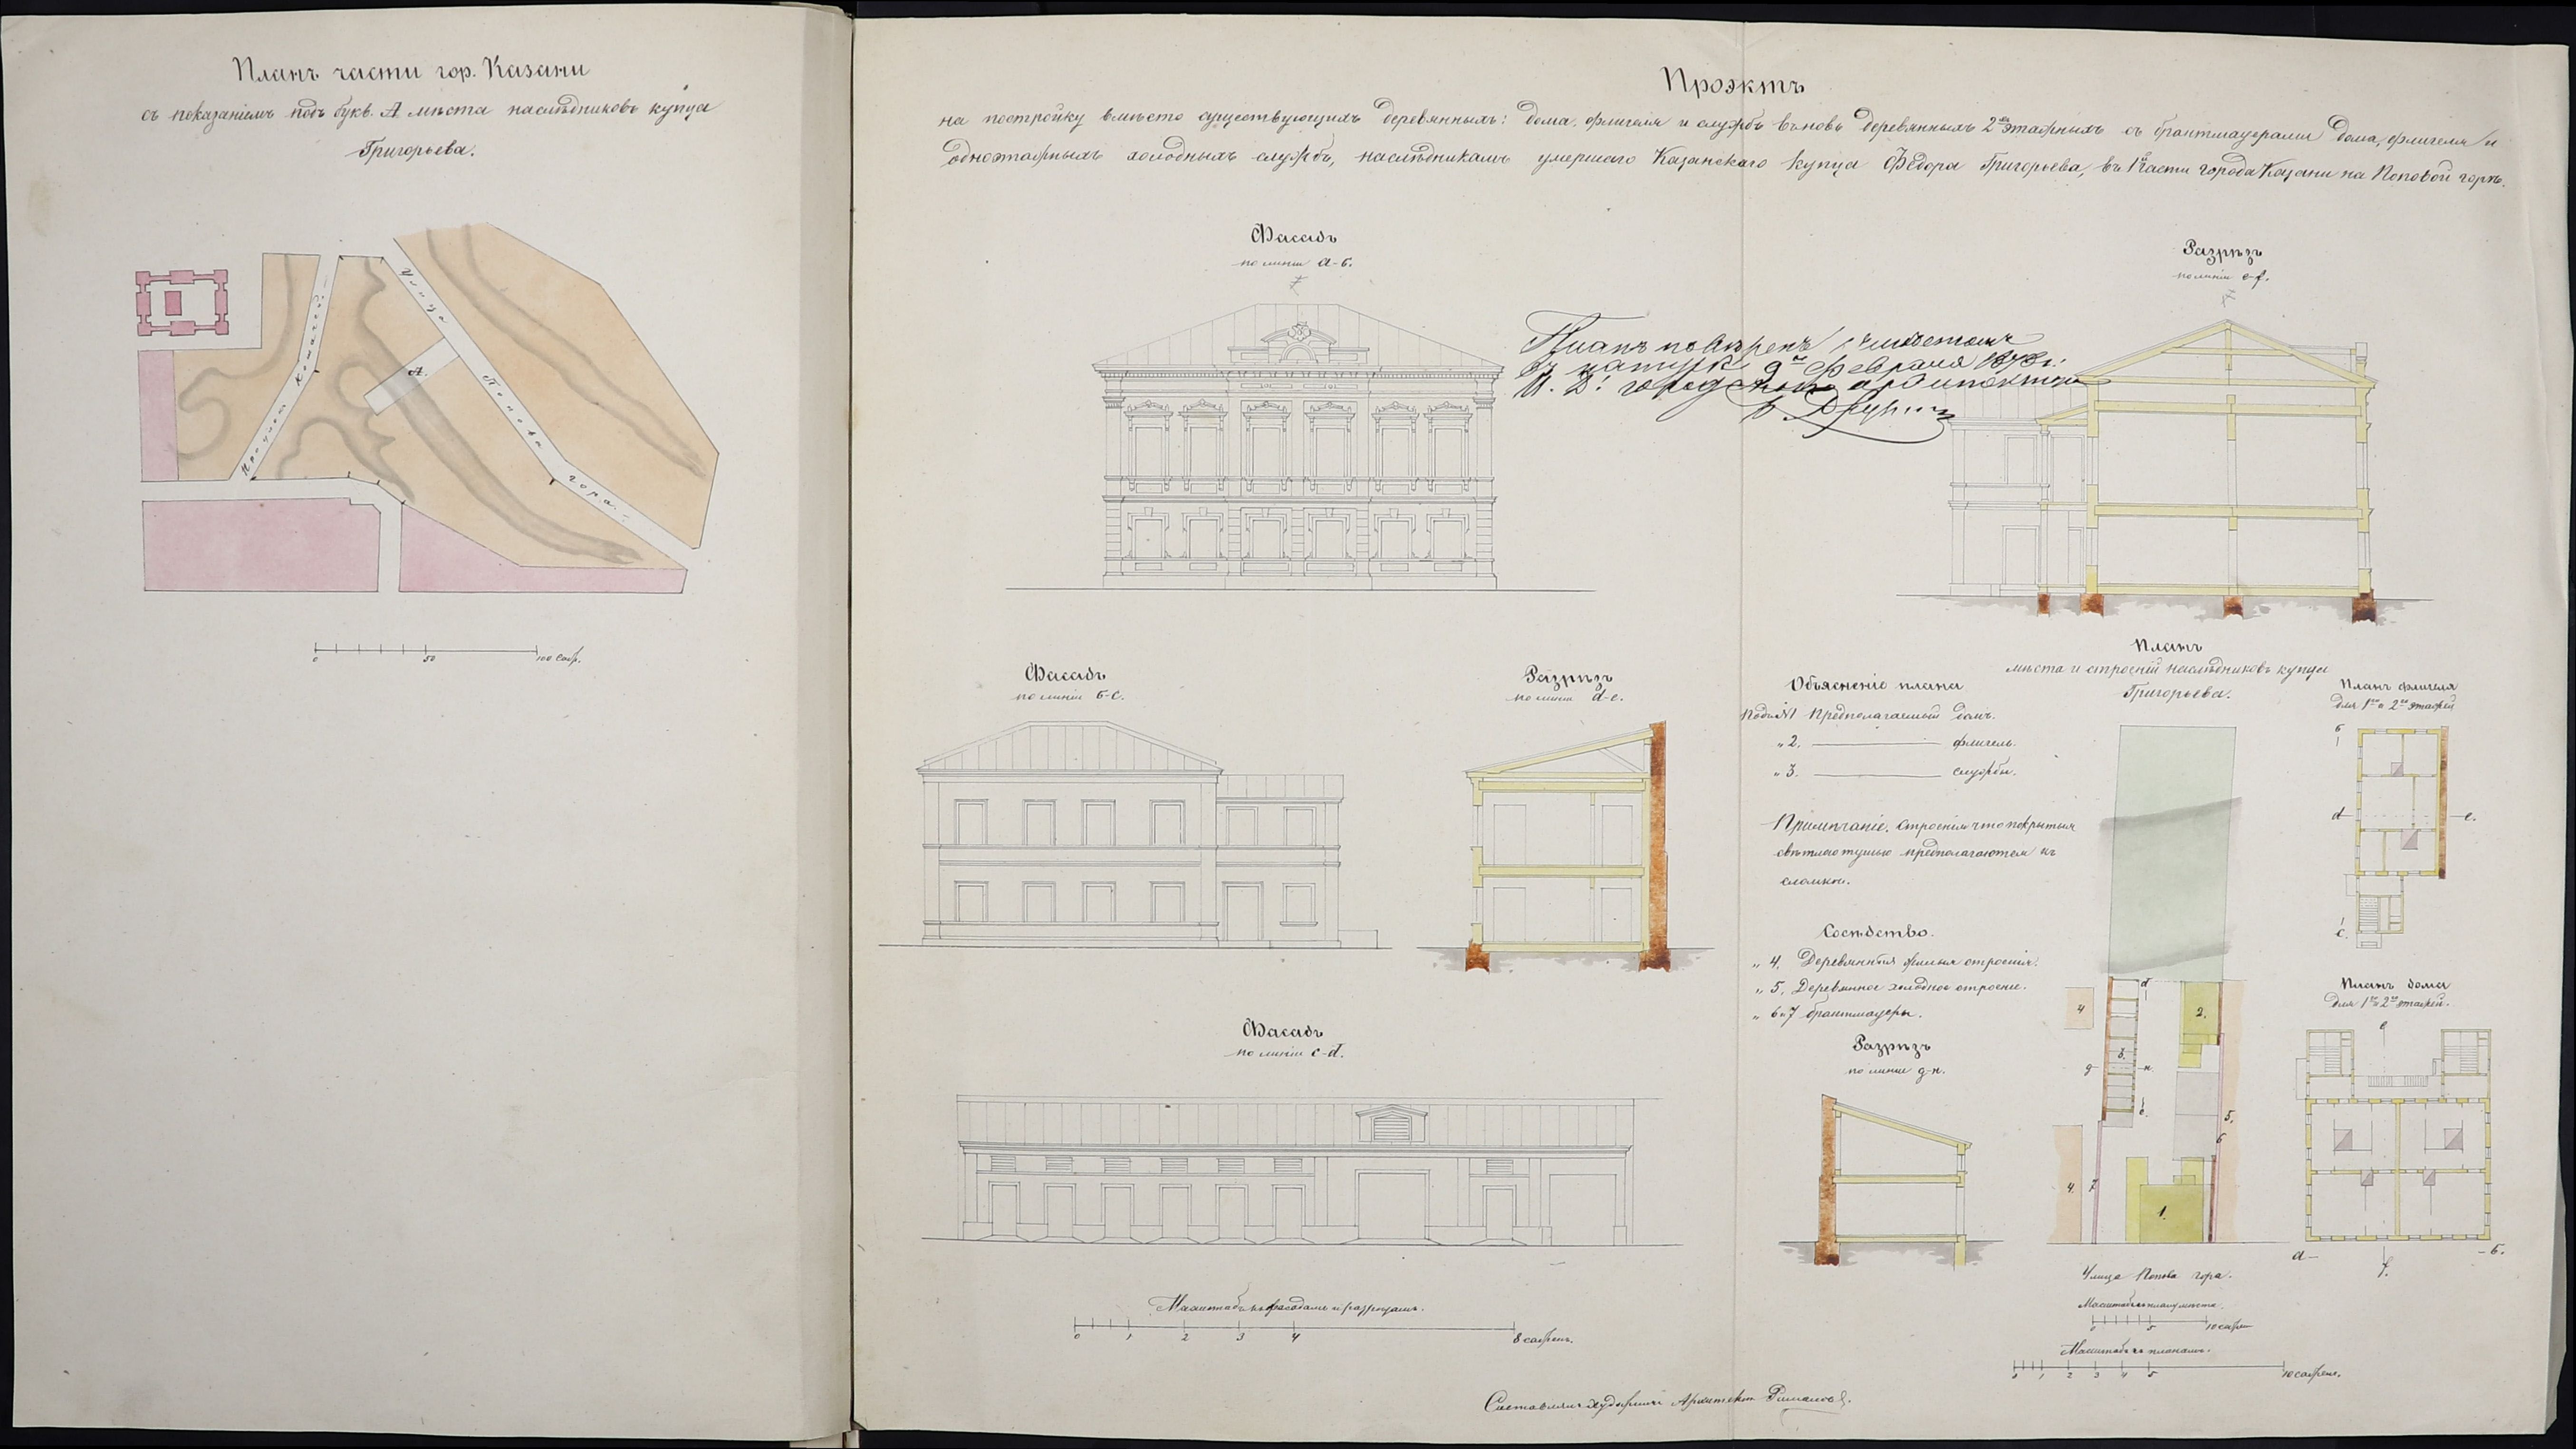 Планъ части гор. Казани
съ показаніемъ подъ букв. А мѣста наслѣдниковъ купца
Григорьева.
Проулокъ
А.
Улица
Попова
гора.
0 50 100 саж.
Проэктъ
на постройку вмѣсто существующихъ деревянныхъ: дома, флигеля и службъ вновь деревянныхъ 2хъ этажныхъ съ брантмауерами дома, флигеля и
одноэтажныхъ холодныхъ службъ, наслѣдникамъ умершаго Казанскаго купца Федора Григорьева, въ 1й части города Казани на Поповой горѣ.
Фасадъ
по линіи а-б.
Разрѣзъ
по линіи e-f.
Планъ повѣренъ
въ натурѣ 9го Февраля
И. Д. городского архитектора
Фасадъ
по линіи б-с.
Разрѣзъ
по линіи d-e.
Объясненіе плана
Подъ №1 Предполагаемый домъ.
" 2. флигель.
" 3. службы.
Примѣчаніе. Строенія что покрытыя
свѣтлою тушью предполагаются къ
сломкѣ.
Сосѣдство.
" 4. Деревянныя жилыя строенія.
" 5. Деревянное холодное строеніе.
" 6 и 7 брантмауеры.
Планъ
мѣста и строеній наслѣдниковъ купца
Григорьева.
4
2.
3.
5.
6
4.
7
1.
Улица Попова гора.
Масштабъ къ плану мѣста.
0 5 10 сажен
Масштабъ къ планамъ.
0 1 2 3 4 5 10 сажен.
Планъ флигеля
для 1го и 2го этажей
б
d e.
с.
Планъ дома
для 1го и 2го этажей.
e
а б.
f.
Фасадъ
по линіи с-d.
Разрѣзъ
по линіи g-н.
Масштабъ къ фасадамъ и разрѣзамъ.
0 1 2 3 4 8 сажень.
Составлялъ Архитекторъ Романовъ.